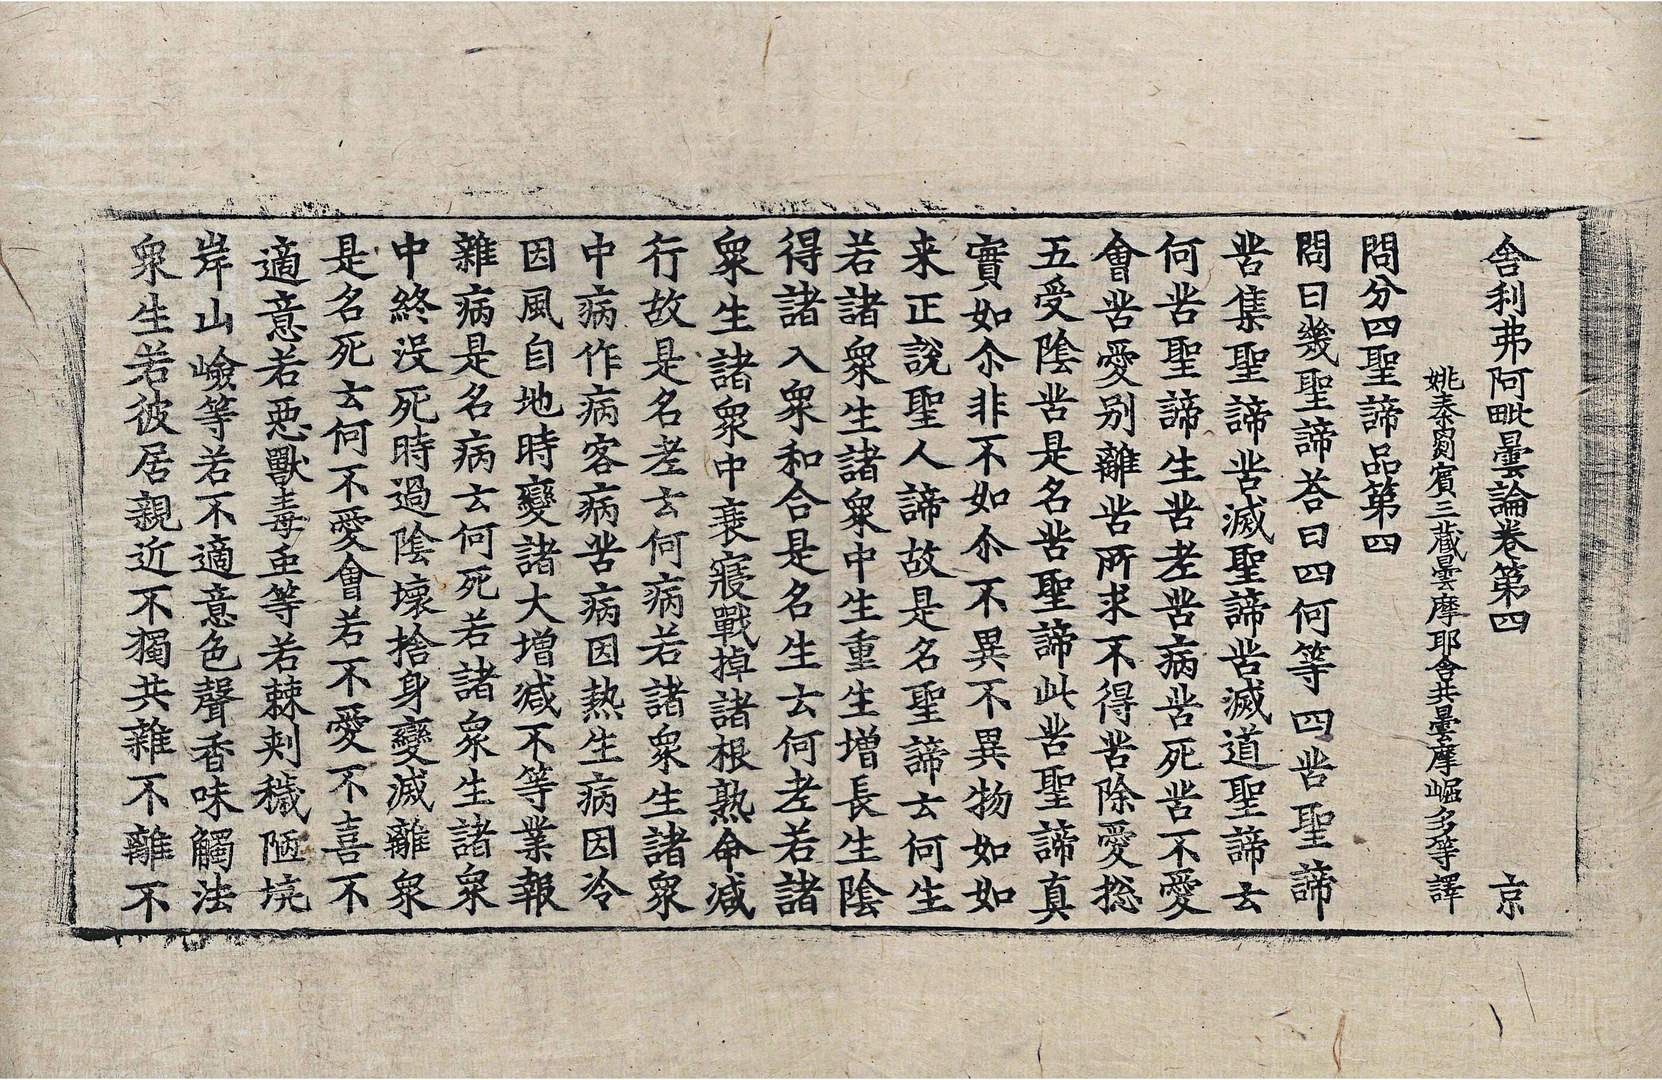 舎利弗阿毗曇論卷第四　京
姚秦罽賓三藏曇摩耶舎共曇摩崛多等譯
問分四聖諦品第四
問曰幾聖諦荅曰四何等四苦聖諦
苦集聖諦苦滅聖諦苦滅道聖諦云
何苦聖諦生苦老苦病苦死苦不愛
會苦愛别離苦所求不得苦除愛捴
五受陰苦是名苦聖諦此苦聖諦真
實如尒非不如尒不異不異物如如
来正說聖人諦故是名聖諦云何生
若諸衆生諸衆中生重生增長生陰
得諸入衆和合是名生云何老若諸
衆生諸衆中衰寢戰掉諸根熟命减
行故是名老云何病若諸衆生諸衆
中病作病客病苦病因熱生病因冷
因風自地時變諸大增减不等業報
雜病是名病云何死若諸衆生諸衆
中終没死時過陰壞捨身變滅離衆
是名死云何不愛會若不愛不喜不
適意若惡獸毒䖝等若棘刾穢陋坑
岸山嶮等若不適意色聲香味觸法
衆生若彼居親近不獨共雜不離不